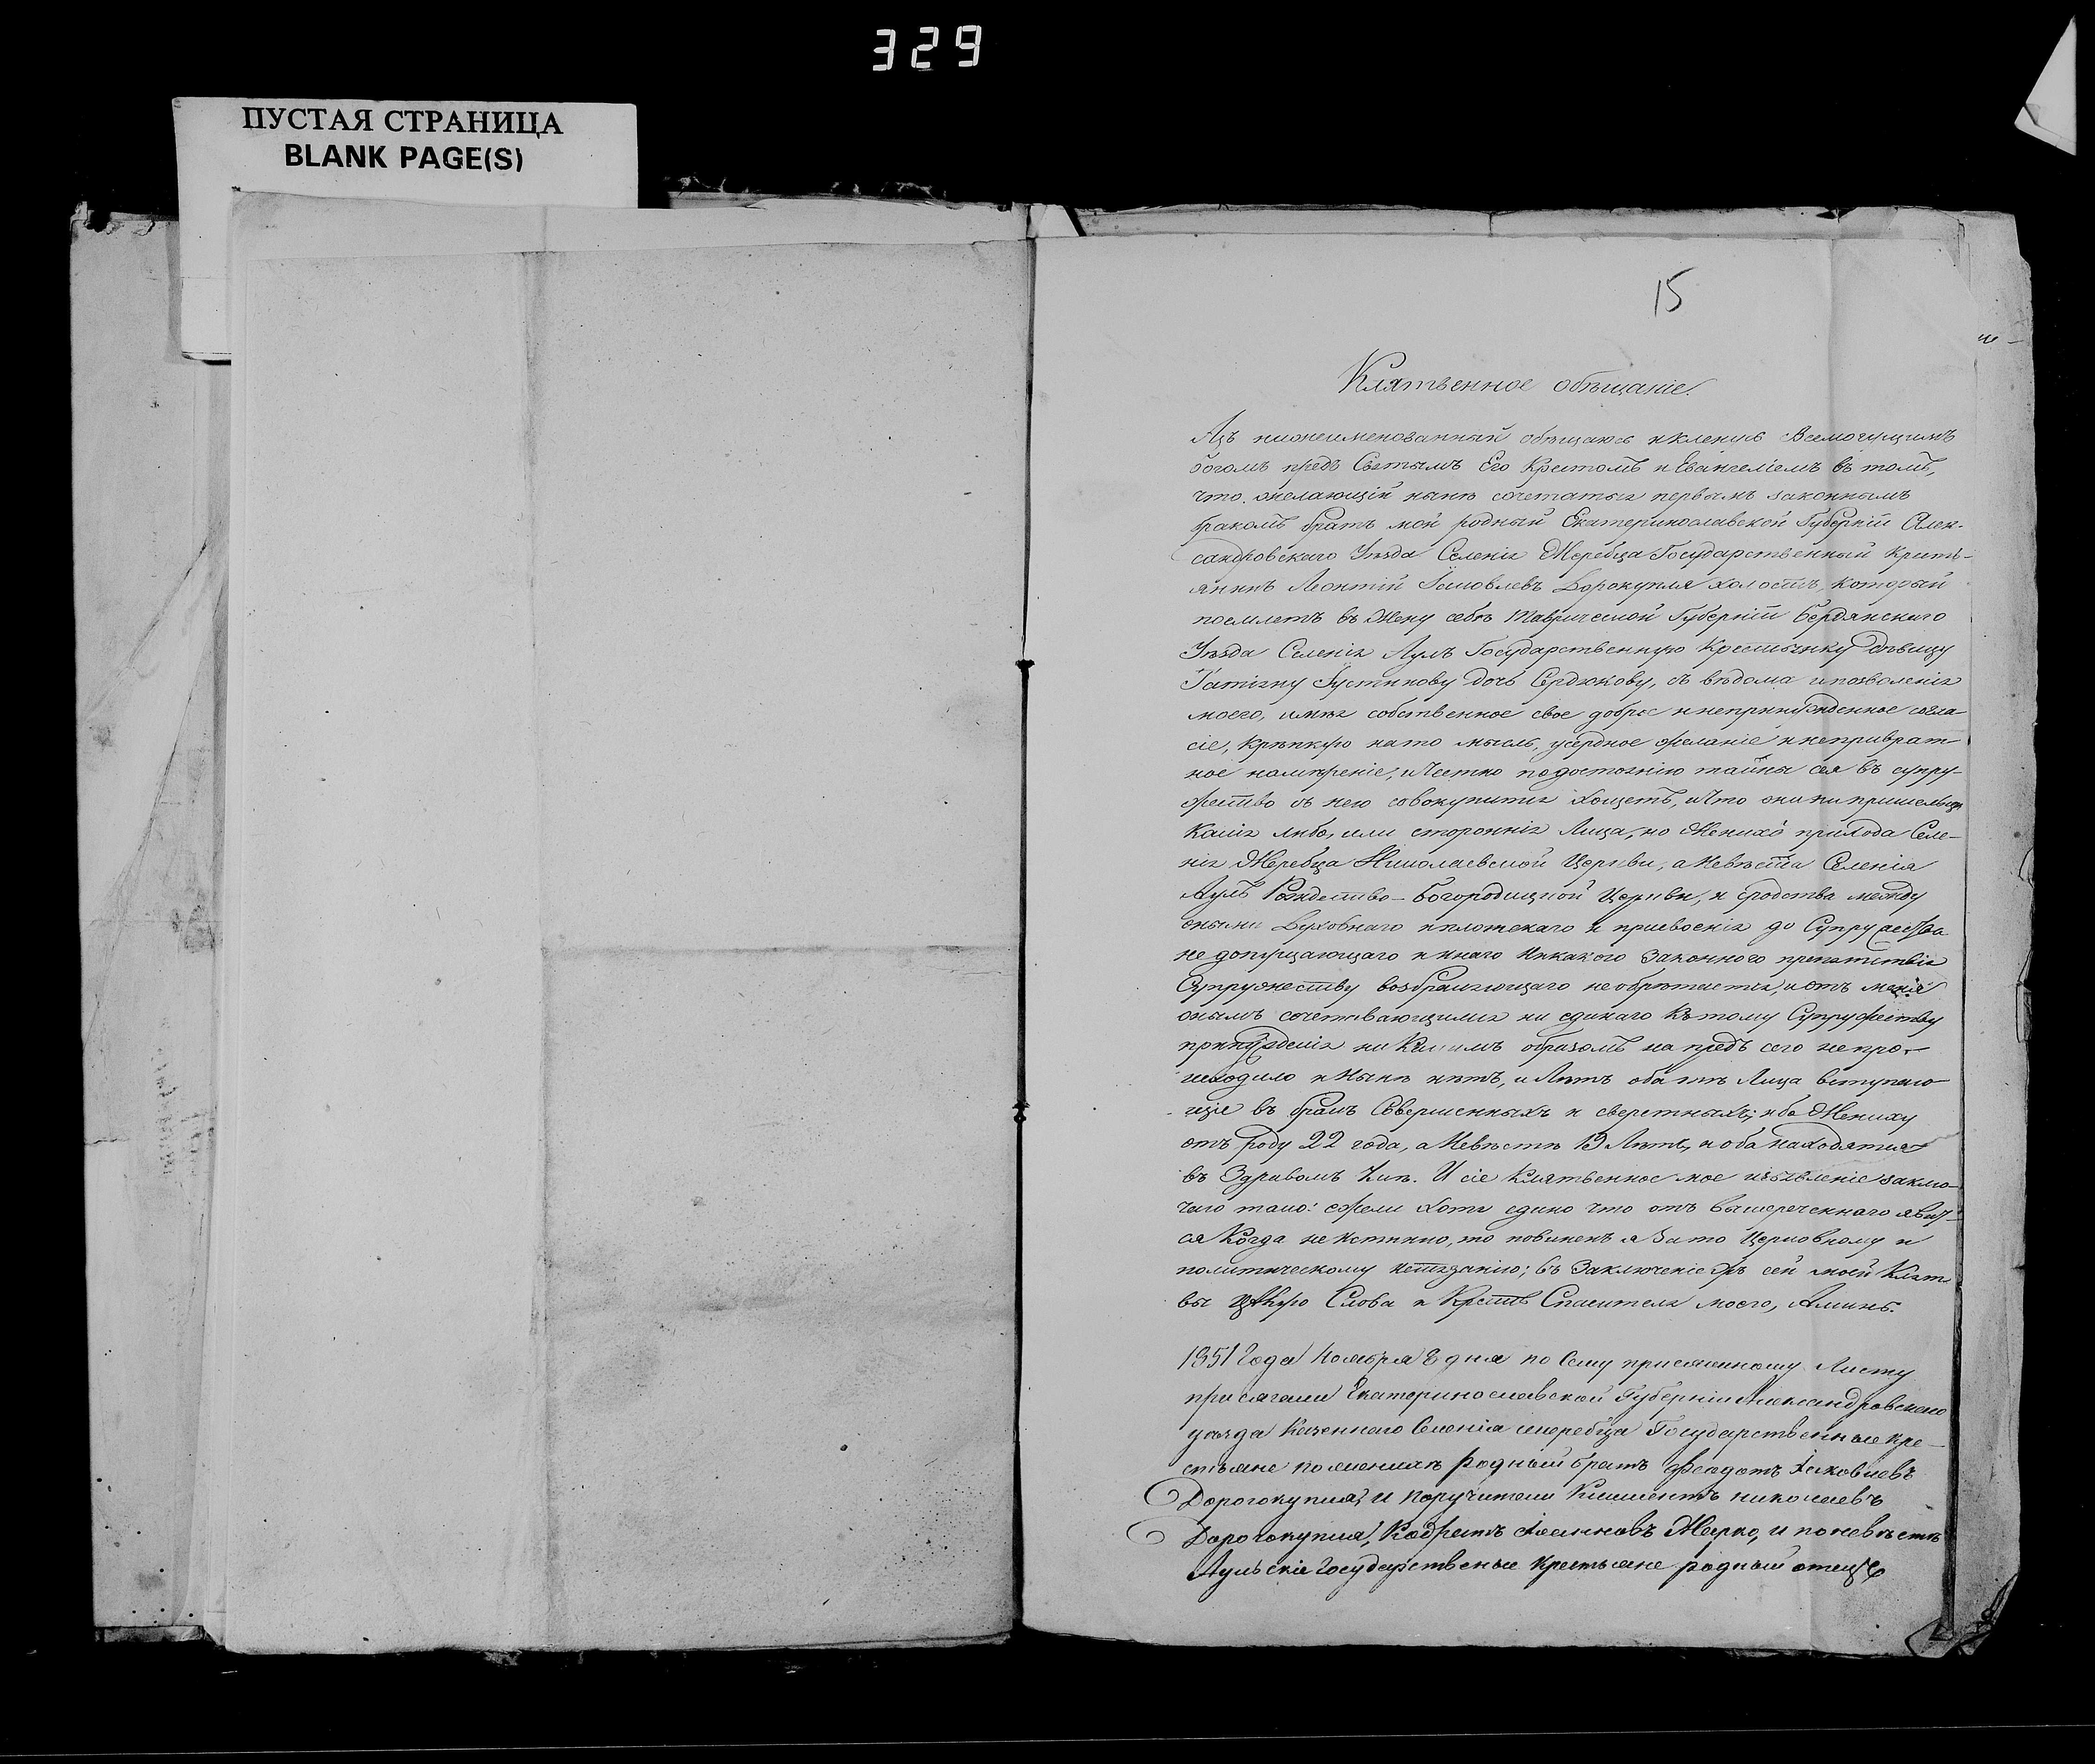 329
ПУСТАЯ СТРАНИЦА
BLANK PAGE(S)
15
Клятвенное обѣщаніе.
Азъ нижеименованный обѣщаюсь и клянусь Всемогущимъ
богомъ предъ Святымъ Его Крестомъ и Евангеліемъ въ томъ,
что желающій нынѣ сочетаться первымъ законнымъ
бракомъ братъ мой родный Екатеринославской Губерніи Алек-
сандровскаго Уѣзда Селенія Жеребца Государственный Крить-
янинъ Леонтій Іяковлевъ Дорокупля холостъ, который
поемлетъ въ Жену себѣ Таврической Губерніи Бердянскаго
Уѣзда Селенія Аулъ Государственную Крестьянку дѣвицу
Татіяну Іустинову дочь Сердюкову, съ вѣдома и позволенія
моего, имѣя собственное свое доброе и непринужденное согла-
сіе, крѣпкую на то мысль, усердное желаніе и непривратн-
ное намѣреніе, и Честно по достоянію тайны сея въ супру-
жество съ нею совокупится хощетъ, и Что они ни пришельцы
Каліе либо, или сторонніе Лица, но Женихъ прихода Селе-
нія Жеребца Николаевской Церкви, а Невѣста Селенія
Аулъ Рождество-Богородицкой Церкви, и сродства между
оными Духовнаго и плотскаго и присвоенія до Супружества
не допущающаго и инаго Никакого Законнаго препятствія
Супружеству возбраняющаго не обрѣтается, и отъ меня
онымъ сочетавающимся ни единаго къ тому Супружеству
принужденія ни Какимъ образомъ на предъ сего не про-
исходило и Нынѣ нѣтъ, и Лѣтъ оба отѣ Лица вступаю-
щіе въ бракъ Совершенныхъ и сверстныхъ; ибо Жениху
отъ роду 22 года, а Невѣстѣ 19 Лѣтъ, и оба находятся
въ Здравомъ Умѣ. И сіе Клятвенное мое изъявленіе заклю-
чаю тако: ежели Хотя едино что отъ вышереченнаго явит-
ся Когда не истинно, то повиненъ я За то Церковному и
политическому истязанію; въ Заключеніе жъ сей моей Клят-
вы цѣлую Слова и Крестъ Спасителя моего, Аминь.
1851 Года Ноября 8 дня по Сему присяжному Листу
присягали Екатеринославской Губерніи Александровскаго
уѣзда Казеннаго Селенія жеребца Государственные кре-
стьяне по женихѣ родный братъ Феодотъ Іаковлевъ
Дорогокупля, и поручители Климентъ николаевъ
Дорогокупля, Кодратъ Іоанновъ Жарко, и по невѣстѣ
Аульскіе Государственые крестьяне родный отецъ